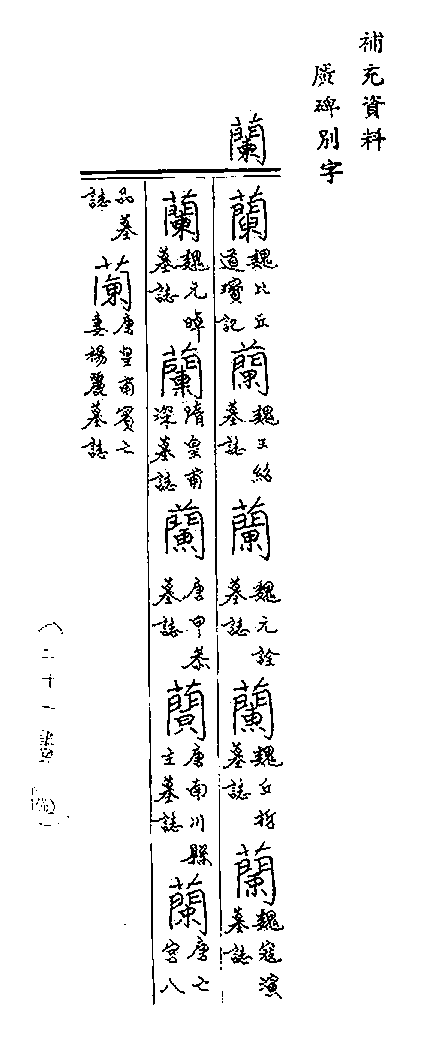 補充資料
廣碑別字
蘭
蘭魏比丘道寶記蘭魏王紹墓誌蘭魏元詮墓誌蘭魏丘哲墓誌蘭魏寇演墓誌
蘭魏元晫墓誌蘭隋皇甫深墓誌蘭唐甲泰墓誌蘭唐南川縣主墓誌蘭唐亡宮八
品墓誌蘭唐皇甫賓亡妻楊麗墓誌
(二十一畫